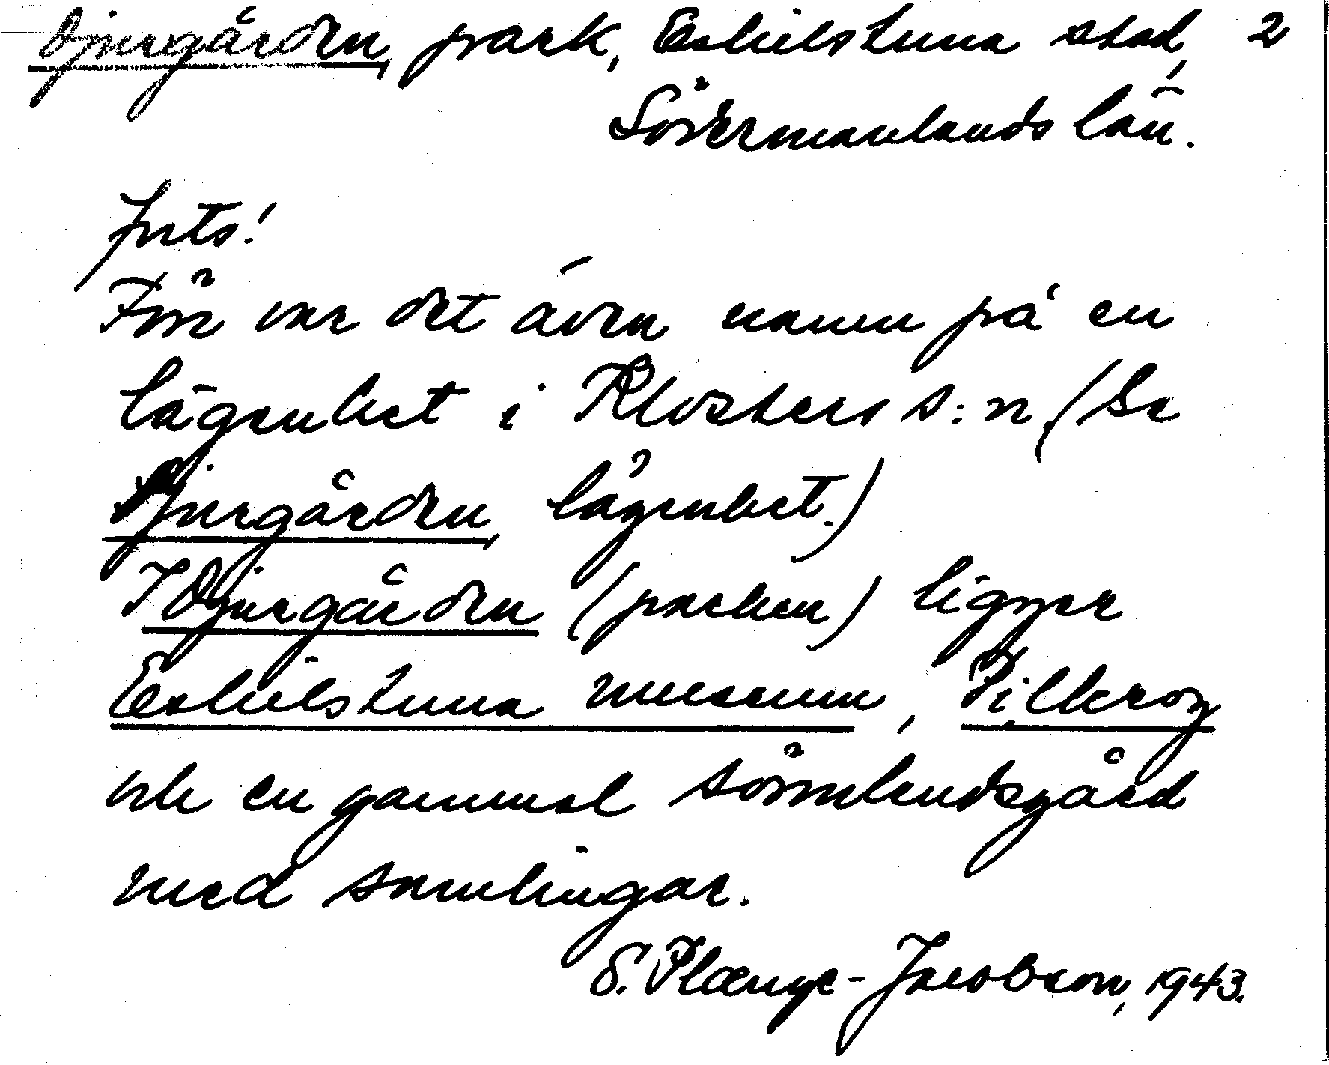 Djurgården, park, Eskilstuna stad, 2
Södermanlands län.
forts!
Förr var det även namn på en
lägenhet i Klosters s:n, (Se
Djurgården, lägenhet.)
I Djurgården (parken) ligger
Eskilstuna museum,
och en gammal sörmlandsgård
med samlingar.
S. Plænge-Jacobson, 1943.